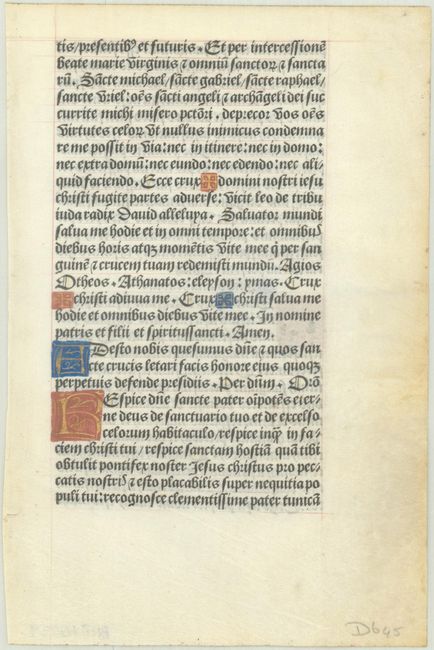 tis/presentibꝰ et futuris. Et per intercessionē
beate marie virginis ⁊ omniū sanctoꝝ ⁊ sancta
rū. Sācte michael/sācte gabriel/sācte raphael/
sancte Vriel: oēs sācti angeli ⁊ archāgeli dei suc
currite michi misero pctōri. deprecor vos oēs
virtutes celoꝝ vt nullus inimicus condemna
re me possit in via: nec in itinere: nec in domo:
nec extra domū: nec eundo: nec edendo: nec ali-
quid faciendo. Ecce crux ✠ domini nostri iesu
christi fugite partes aduerse: vicit leo de tribu
iuda radix Dauid alleluya. Saluator mundi
salua me hodie et in omni tempore: et omnibus
diebus horis atqꝫ momētis vite mee q̄ per san
guinē ⁊ crucem tuam redemisti mundū. Agios
Otheos. Athanatos: eleyson: ymas. Crux
✠ christi adiuua me. Crux ✠ christi salua me
hodie et omnibus diebus vite mee. In nomine
patris et filii et spiritussancti. Amen.
Adesto nobis quesumus dn̄e ⁊ quos san
cte crucis letari facis honore eius quoqꝫ
perpetuis defende presidiis. Per dn̄m. Or̄o
Respice dn̄e sancte pater oīpotēs eter-
ne deus de sanctuario tuo et de excelso
celorum habitaculo/respice inq̄ in fa-
ciem christi tui/respice sanctam hostiā quā tibi
obtulit pontifex noster Jesus christus pro pec-
catis nostris ⁊ esto placabilis super nequitia po
puli tui: recognosce clementissime pater tunicā
Db45